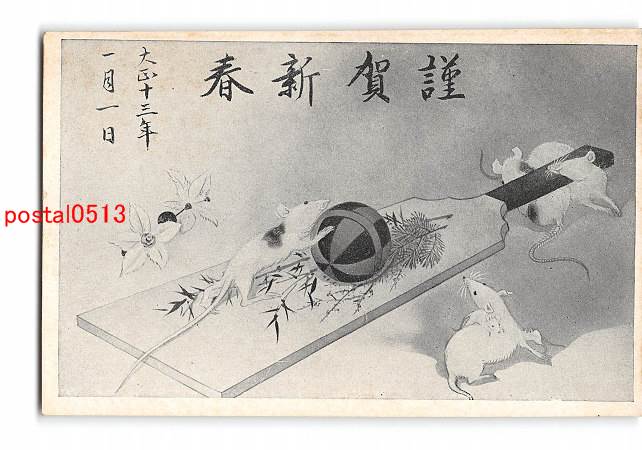 謹賀新春
大正十三年
一月一日
postal0513